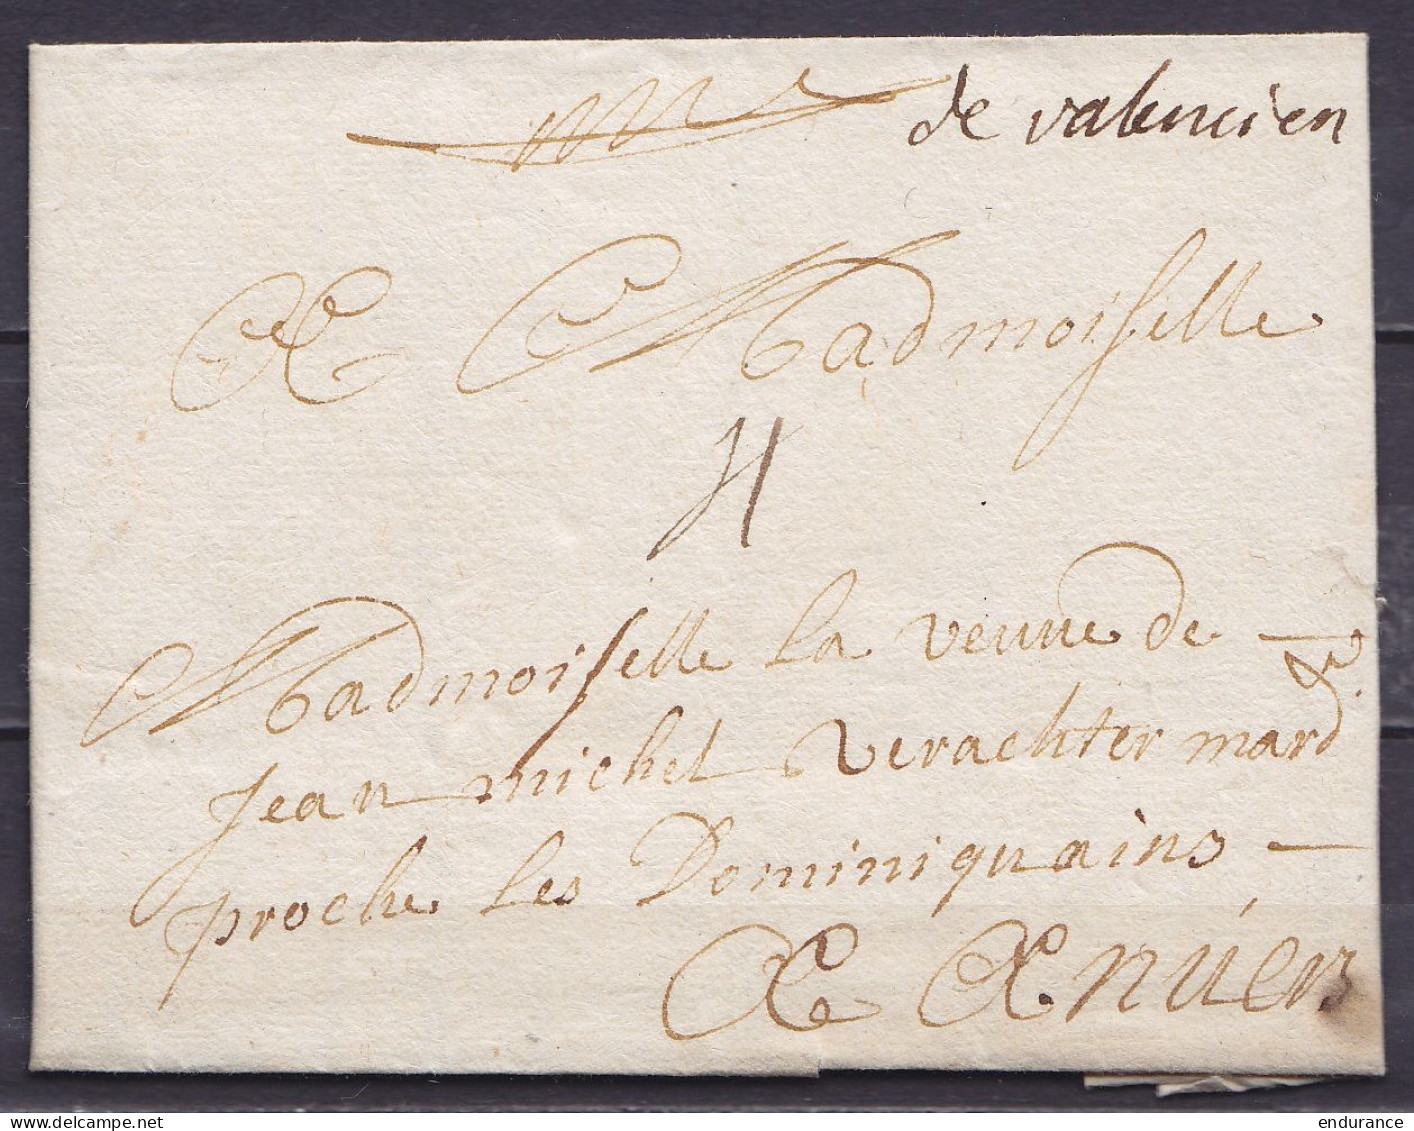 de valencien
A Madmoiselle
4
Madmoiselle la veuue de
Jean michel verachter mard.
proche les Dominiquains
A Anuers
endurance